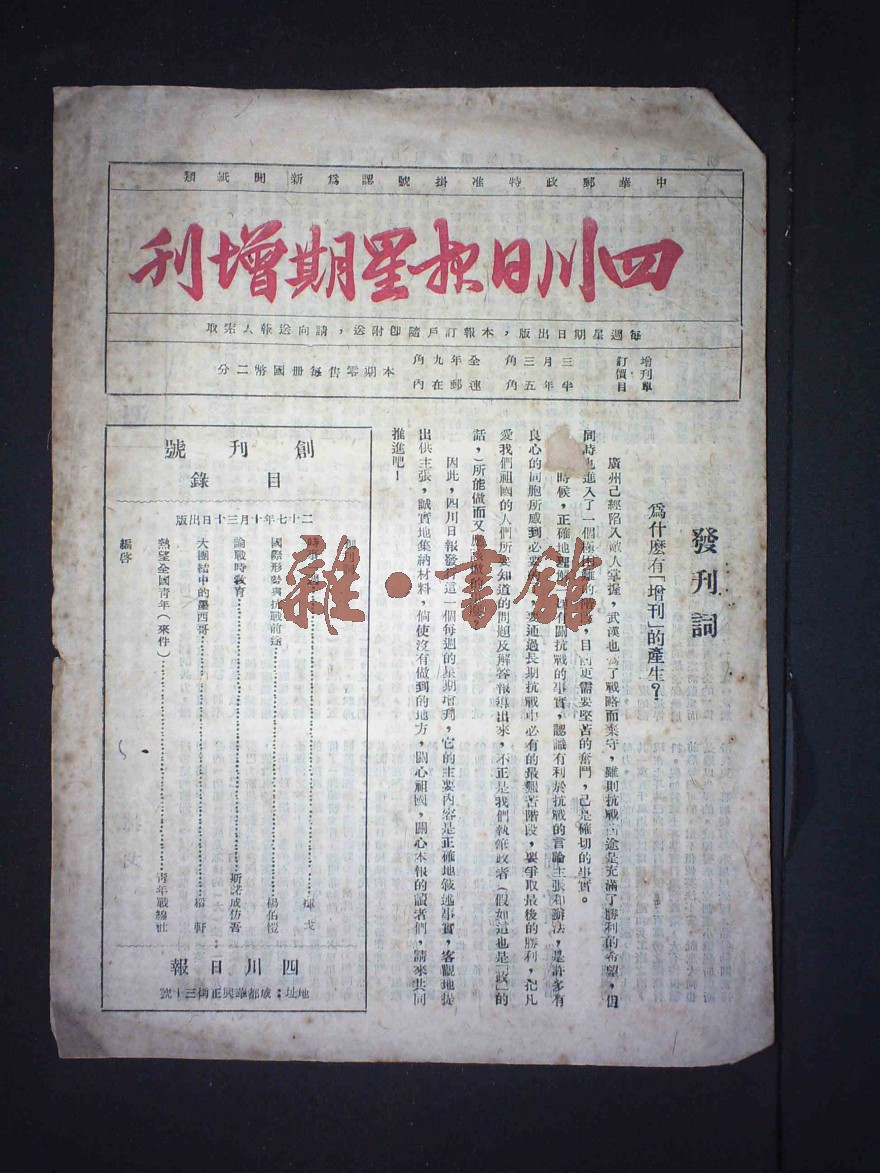 中華郵政特准掛號認爲新聞紙類
四川日报星期增刊
每週星期日出版，本報訂戶隨卽附送，請向送報人索取
增刊單
訂價目
三月三角
半年五角
全年九角
連郵在內
本期零售每冊國幣二分
發刊詞
爲什麽有「增刊」的產生？
廣州已經陷入敵人掌握，武漢也爲了戰略而棄守，雖則抗戰前途是充滿了勝利的希望，但
同時也進入了一個 的 ，目前更需要堅苦的奮鬥，已是確切的事實。
時候，正確地 關抗戰的事實，認識有利於抗戰的言論主張和辦法，是許多有
良心的同胞所感到必要 要通過長期抗戰中必有的最艱苦階段，要爭取最後的勝利，把凡
愛我們祖國的人們所要知道的問題及解答報導出來，不正是我們執 政者（假如這也是「政」的
話，）所能做而又應該做的
因此，四川日報發行這一個每週的星期增刊，它的主要內容是正確地敘述事實，客觀地提
出供主張，誠實地集納材料，倘使沒有做到的地方，關心祖國，關心本報的讀者們，請來共同
推進吧！
創刊號
目錄
二十七年十月三十日出版
揮戈
國際形勢與抗戰前途……楊伯愷
論戰時教育……斯諾 成仿吾
大團結中的墨西哥……楊軒
熱望全國青年（來件）……青年戰線社
編啓
四川日報
地址：成都華興正街三十號
雜·書館